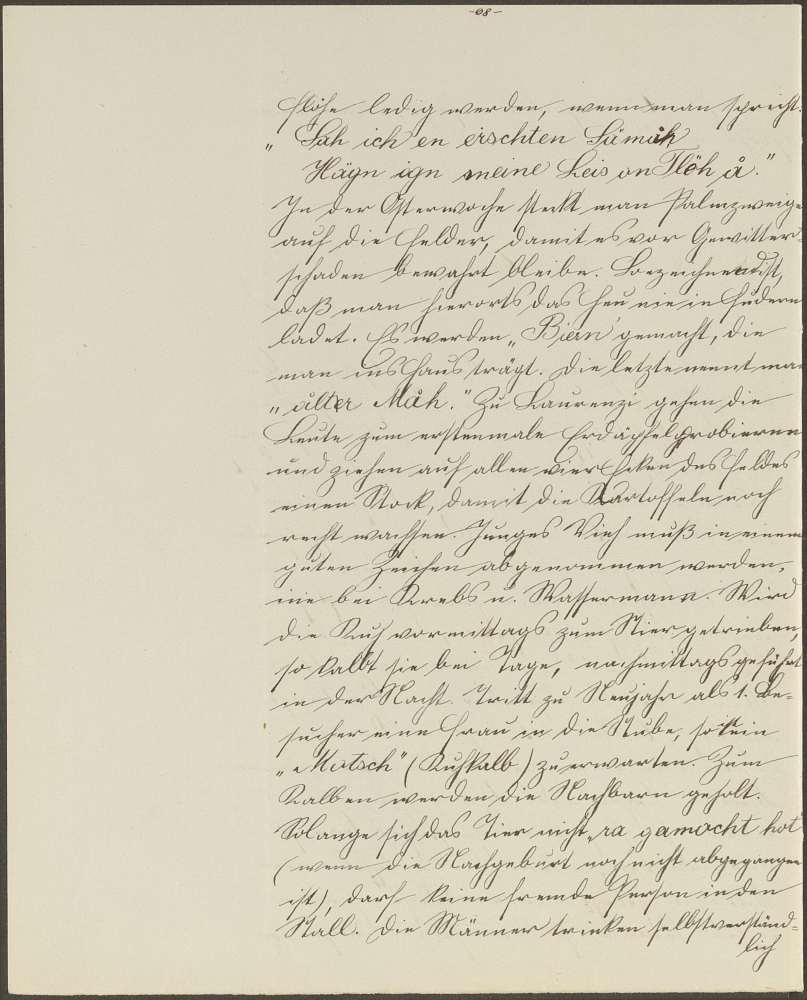 -68-
Flöhe ledig werden, wenn man spricht:
„Sah ich en erschten Sümåh
Hägn ign meine Leis on Flöh å."
In der Osterwoche steckt man Palmzweige
auf die Felder, damit es vor Gewitter-
schaden bewahrt bleibe. Bezeichnend ist,
daß man hierorts das Heu nie in Fudern
ladet. Es werden „Biern" gemacht, die
man ins Haus trägt. Die letzte nennt man
„ålter Måh." Zu Laurenzi gehen die
Leute zum erstenmale Erdäpfel probieren
und ziehen auf allen vier Ecken des Feldes
einen Stock, damit die Kartoffeln noch
recht wachsen. Junges Vieh muß in einem
guten Zeichen abgenommen werden,
wie bei Krebs u. Wassermann. Wird
die Kuh vormittags zum Stier getrieben,
so kalbt sie bei Tage, nachmittags geführt
in der Nacht. Tritt zu Neujahr als 1. Be-
sucher eine Frau in die Stube, so ist ein
„Mutsch" (Kuhkalb) zu erwarten. Zum
Kalben werden die Nachbarn geholt.
Solange sich das Tier nicht „ra gamocht hot"
(wenn die Nachgeburt noch nicht abgegangen
ist), darf keine fremde Person in den
Stall. Die Männer trinken selbstverständ-
lich